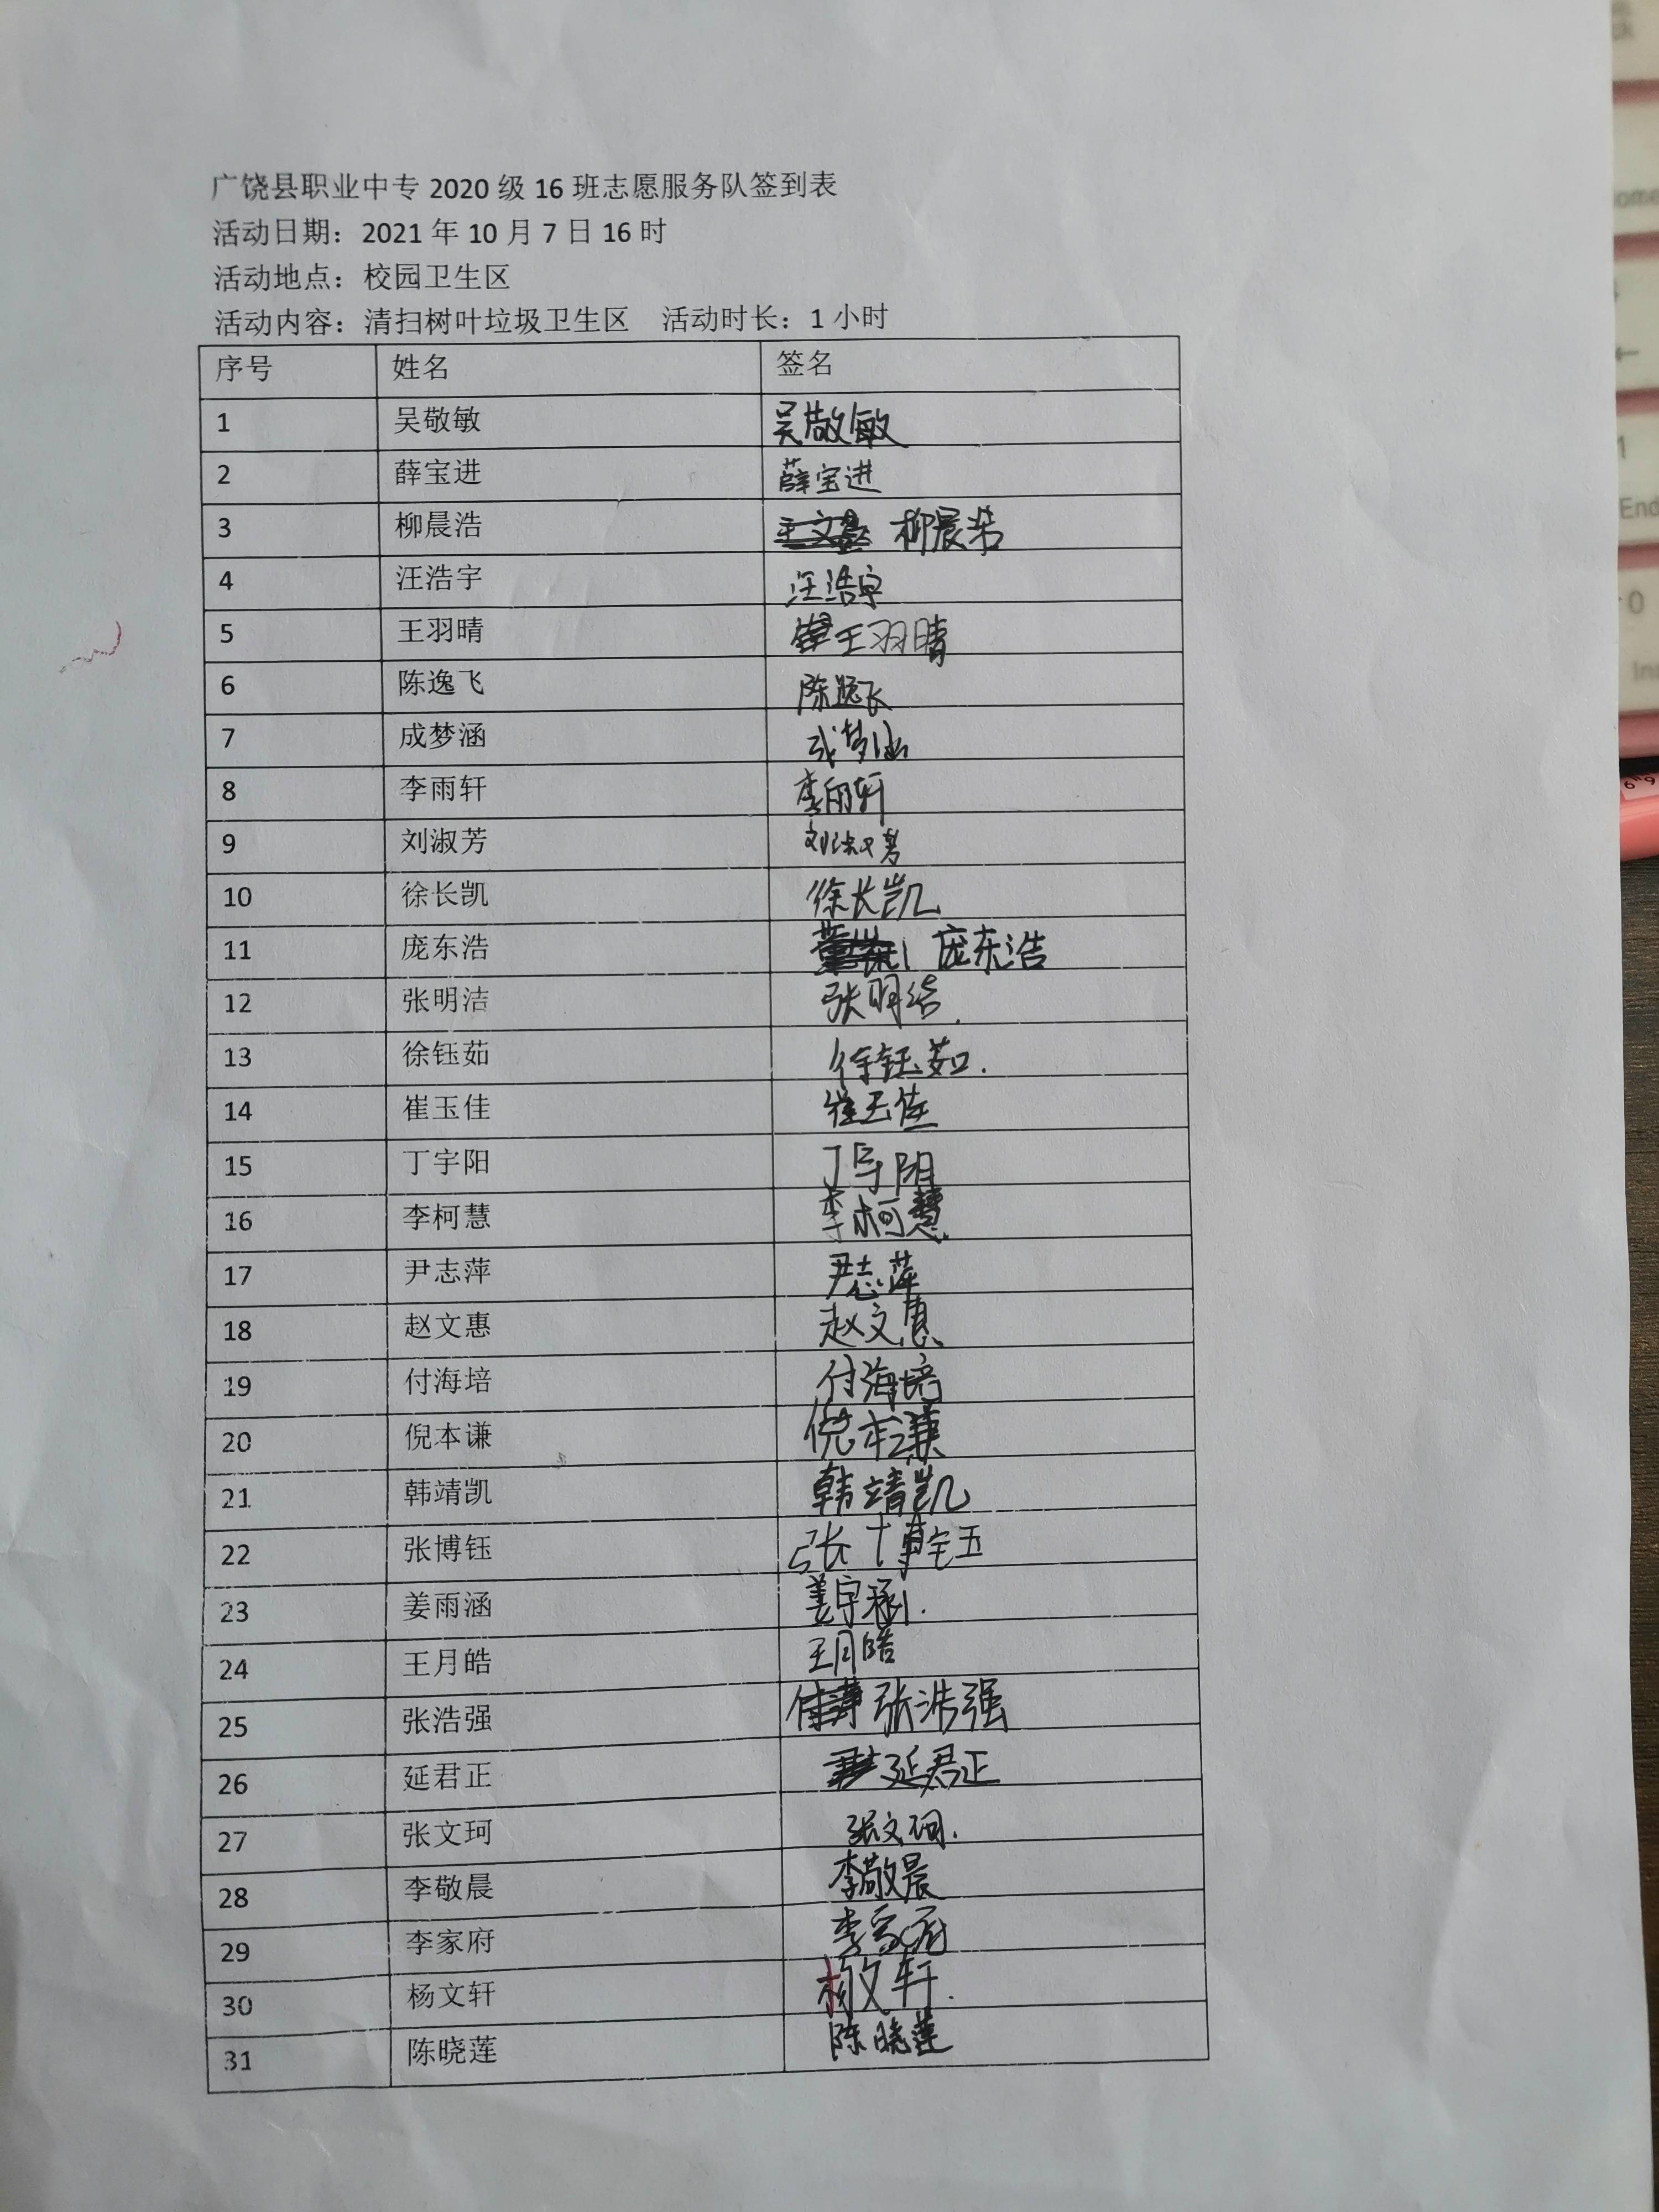 广饶县职业中专 2020 级 16 班志愿服务队签到表
活动日期：2021 年 10 月 7 日 16 时
活动地点：校园卫生区
活动内容：清扫树叶垃圾卫生区 活动时长：1 小时
序号 姓名 签名
1 吴敬敏 吴敬敏
2 薛宝进 薛宝进
3 柳晨浩 柳晨浩
4 汪浩宇 汪浩宇
5 王羽晴 王羽晴
6 陈逸飞 陈逸飞
7 成梦涵 成梦涵
8 李雨轩 李雨轩
9 刘淑芳 刘淑芳
10 徐长凯 徐长凯
11 庞东浩 庞东浩
12 张明洁 张明洁
13 徐钰茹 徐钰茹.
14 崔玉佳 崔玉佳
15 丁宇阳 丁宇阳
16 李柯慧 李柯慧
17 尹志萍 尹志萍
18 赵文惠 赵文惠
19 付海培 付海培
20 倪本谦 倪本谦
21 韩靖凯 韩靖凯
22 张博钰 张博钰
23 姜雨涵 姜宇涵.
24 王月皓 王月皓
25 张浩强 张浩强
26 延君正 延君正
27 张文珂 张文珂.
28 李敬晨 李敬晨
29 李家府 李家府
30 杨文轩 杨文轩.
31 陈晓莲 陈晓莲
End
0